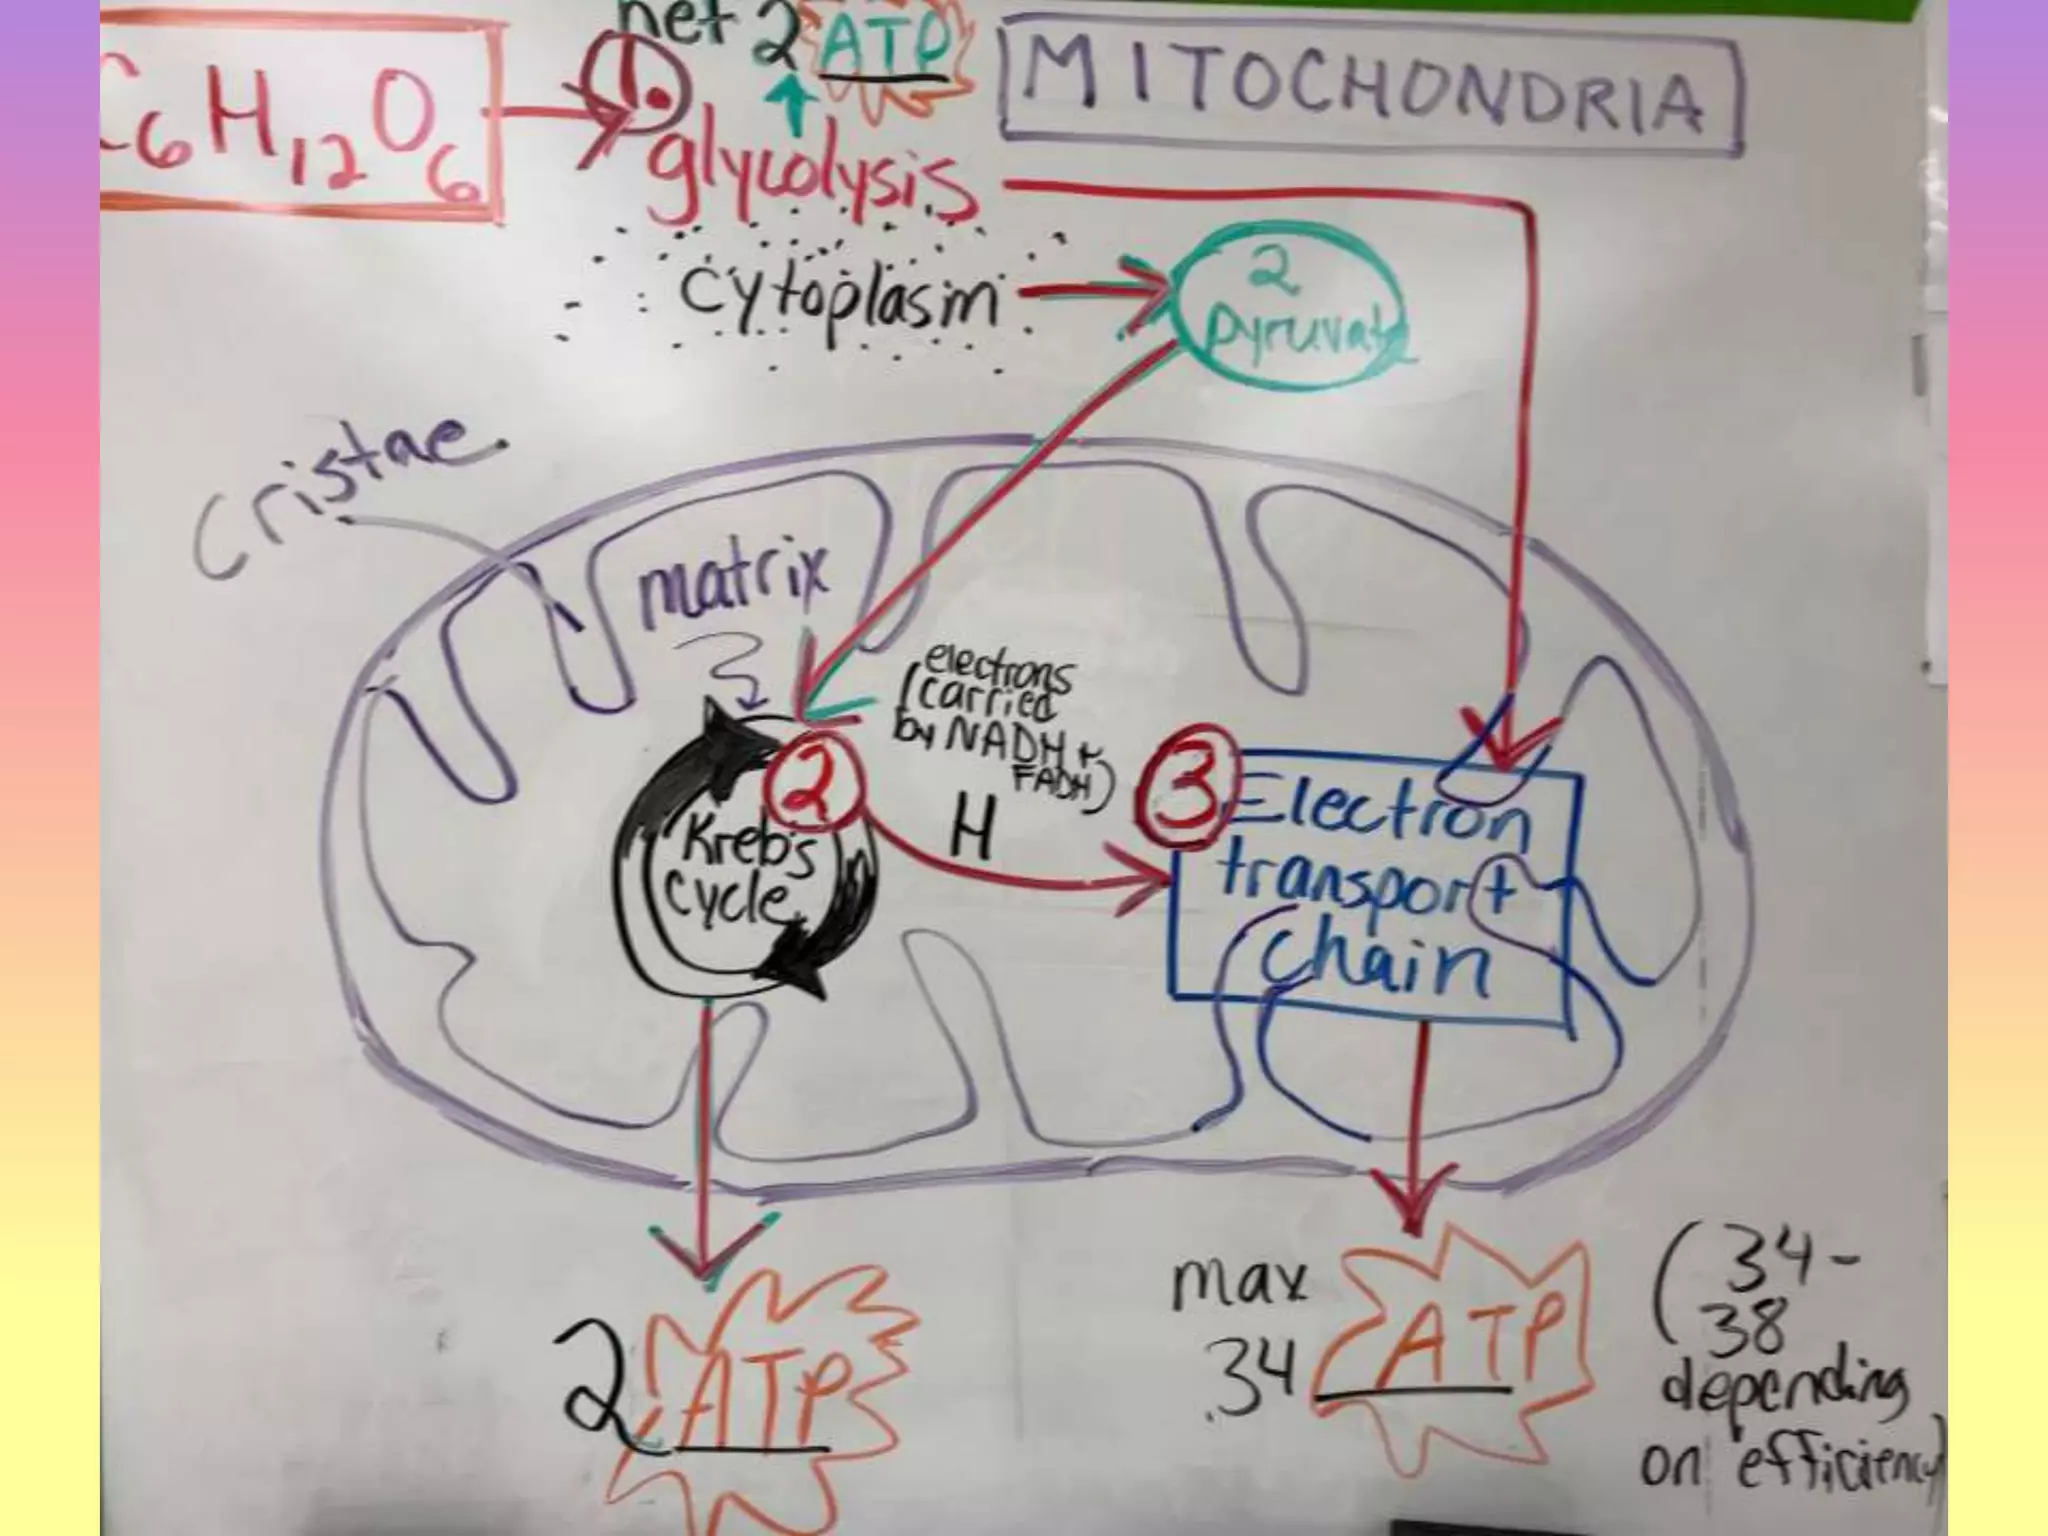 net 2 ATP
MITOCHONDRIA
C6H12O6
1.
glycolysis
cytoplasm
2
pyruvate
cristae
matrix
electrons
(carried
by NADH +
FADH)
H
2
Krebs
cycle
3
Electron
transport
chain
2 ATP
max
34 ATP
(34-
38
depending
on efficiency)